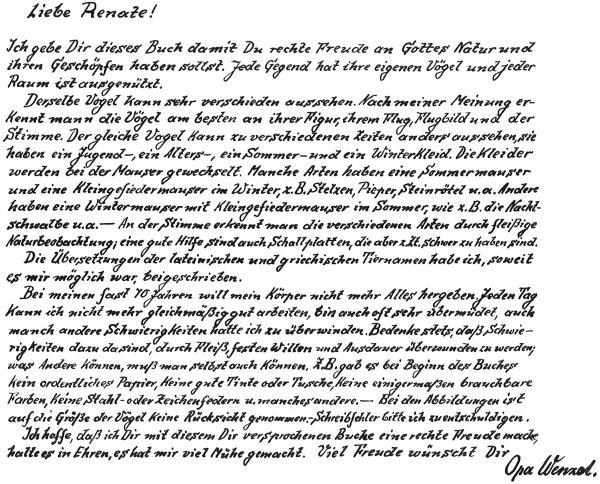 Liebe Renate!
Ich gebe Dir dieses Buch damit Du rechte Freude an Gottes Natur und
ihren Geschöpfen haben sollst. Jede Gegend hat ihre eigenen Vögel und jeder
Raum ist ausgenützt.
Derselbe Vogel kann sehr verschieden aussehen. Nach meiner Meinung er-
kennt man die Vögel am besten an ihrer Figur, ihrem Flug, Flugbild und der
Stimme. Der gleiche Vogel kann zu verschiedenen Zeiten anders aussehen, sie
haben ein Jugend-, ein Alters-, ein Sommer- und ein Winterkleid. Die Kleider
werden bei der Mauser gewechselt. Manche Arten haben eine Sommermauser
und eine Kleingefiedermauser im Winter, z.B. Stelzen, Pieper, Steinrötel u.a. Andere
haben eine Wintermauser mit Kleingefiedermauser im Sommer, wie z.B. die Nacht-
schwalbe u.a. — An der Stimme erkennt man die verschiedenen Arten durch fleißige
Naturbeobachtung; eine gute Hilfe sind auch Schallplatten, die aber z.Zt. schwer zu haben sind.
Die Übersetzungen der lateinischen und griechischen Tiernamen habe ich, soweit
es mir möglich war, beigeschrieben.
Bei meinen fast 70 Jahren will mein Körper nicht mehr Alles hergeben. Jeden Tag
kann ich nicht mehr gleichmäßig gut arbeiten, bin auch oft sehr übermüdet, auch
manch andere Schwierigkeiten hatte ich zu überwinden. Bedenke stets, daß, Schwie-
rigkeiten dazu da sind, durch Fleiß, festen Willen und Ausdauer überwunden zu werden;
was Andere können, muß man selbst auch können. Z.B. gab es bei Beginn des Buches
kein ordentliches Papier, keine gute Tinte oder Tusche, keine einigermaßen brauchbare
Farben, keine Stahl- oder Zeichenfedern u. manches andere. — Bei den Abbildungen ist
auf die Größe der Vögel keine Rücksicht genommen. - Schreibfehler bitte ich zu entschuldigen.
Ich hoffe, daß ich Dir mit diesem Dir versprochenen Buche eine rechte Freude mache,
halte es in Ehren, es hat mir viel Mühe gemacht. Viel Freude wünscht Dir
Opa Wenzel.